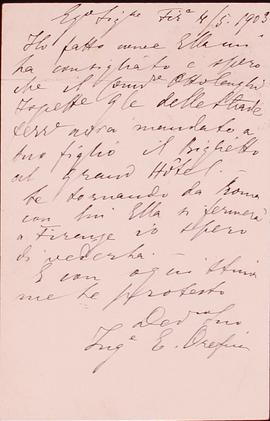 Eg° Sig.re Fir.e 4/5. 1903
Ho fatto come Ella mi
ha consigliato e spero
che il Comm.e Ottolenghi
Ispett.e G.le delle Strade
Ferr.e avrà mandato a
suo figlio il Biglietto
al Grand Hôtel.
Se tornando da Roma
con lui Ella si fermerà
a Firenze io spero
di vederla.
E con ogni stima
me le protesto
Suo
Ing.e E. Orefici